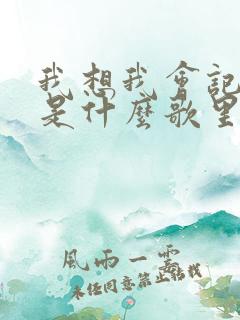 我想我會記
是什麼歌里
風雨一霎
未经同意禁止转载